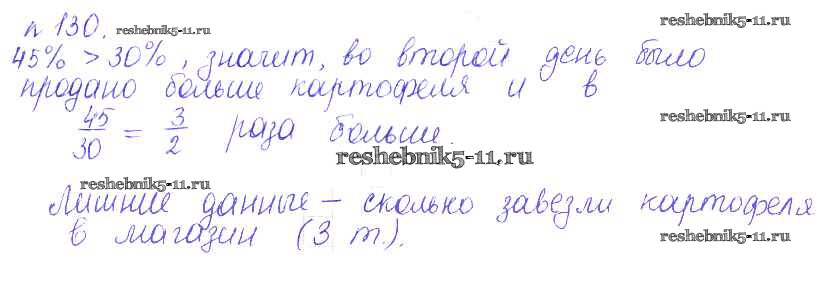 n 130. reshebnik5-11.ru reshebnik5-11.ru
45% > 30%, значит, во второй день было
продано больше картофеля и в
45/30 = 3/2 раза больше. reshebnik5-11.ru
reshebnik5-11.ru
reshebnik5-11.ru
Лишние данные – сколько завезли картофеля
в магазин (3 т). reshebnik5-11.ru